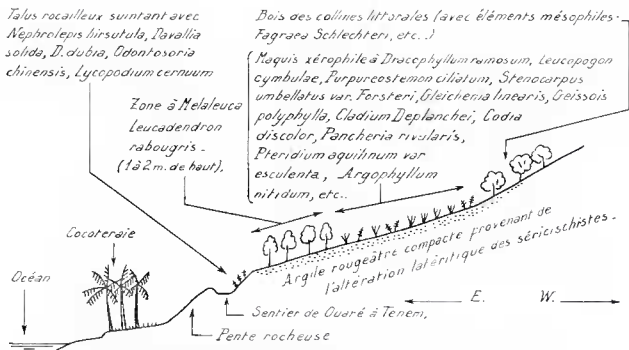 Talus rocailleux suintant avec
Nephrolepis hirsutula, Davallia
solida, D. dubia, Odontosoria
chinensis, Lycopodium cernuum
Bois des collines littorales (avec éléments mésophiles:
Fagraea Schlechteri, etc..)
Maquis xérophile à Dracophyllum ramosum, Leucopogon
cymbulae, Purpureostemon ciliatum, Stenocarpus
umbellatus var. Forsteri, Gleichenia linearis, Geissois
polyphylla, Cladium Deplanchei, Codia
discolor, Pancheria rivularis,
Pteridium aquilinum var
esculenta, Argophyllum
nitidum, etc..
Zone à Melaleuca
Leucadendron
rabougris.
(1 à 2 m. de haut).
Cocoteraie
Océan
Argile rougeâtre compacte provenant de
l'altération latéritique des séricischistes.
E. W.
Sentier de Ouaré à Tenem.
Pente rocheuse